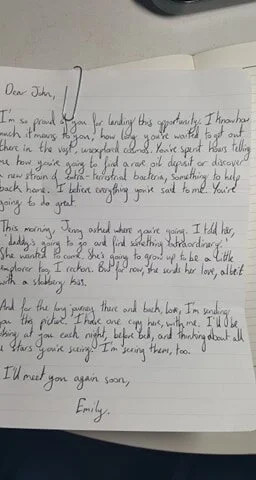 Dear John,
I'm so proud of you for landing this opportunity. I know how
much it means to you, how long you've waited to get out
there in the vast, unexplored cosmos. You've spent hours telling
me how you're going to find a rare oil deposit or discover
a new strain of extra-terrestrial bacteria, something to help
back home. I believe everything you've said to me. You're
going to do great
This morning, Jenny asked where you're going. I told her,
'daddy's going to go and find something extraordinary.'
She wanted to come. She's going to grow up to be a little
explorer too, I reckon. But for now, she sends her love, albeit
with a slobbery kiss.
And for the long journey there and back, love, I'm sending
you this picture. I have one copy here, with me. I'll be
looking at you each night, before bed, and thinking about all
stars you're seeing. I'm seeing them, too.
I'll meet you again soon,
Emily.